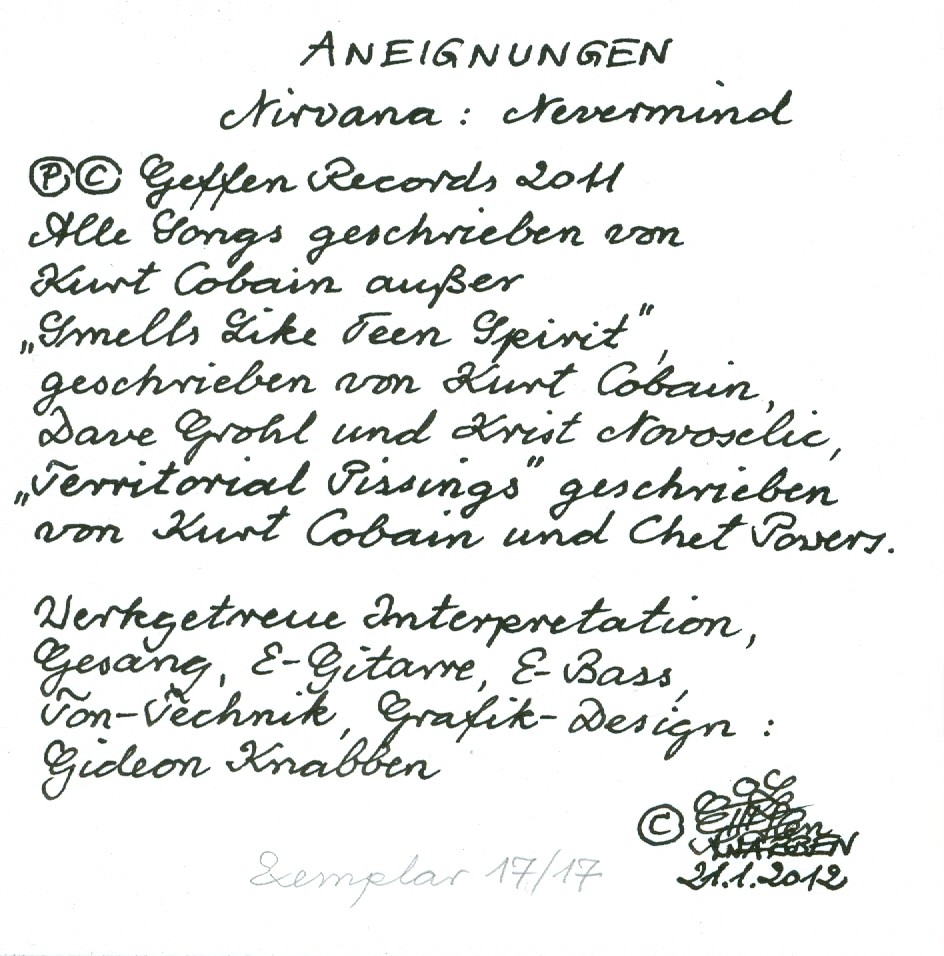 ANEIGNUNGEN
Nirvana : Nevermind
Ⓟ© Geffen Records 2011
Alle Songs geschrieben von
Kurt Cobain außer
„Smells Like Teen Spirit“,
geschrieben von Kurt Cobain,
Dave Grohl und Krist Novoselic,
„Territorial Pissings“ geschrieben
von Kurt Cobain und Chet Powers.
Werkgetreue Interpretation,
Gesang, E-Gitarre, E-Bass,
Ton-Technik, Grafik-Design :
Gideon Knabben
©
KNABBEN
21.1.2012
Exemplar 17/17